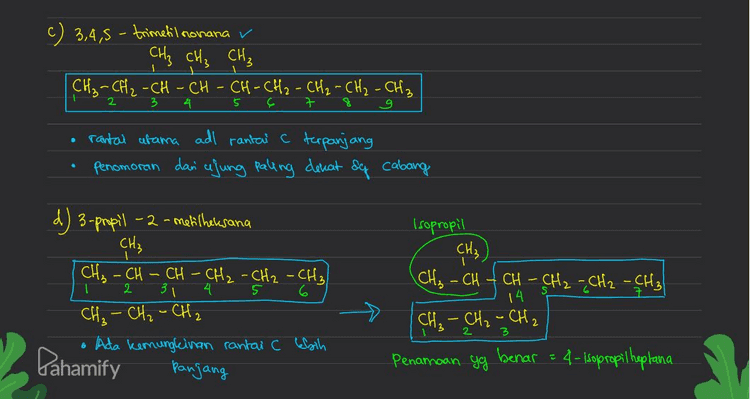 c) 3,4,5 - trimetilnonana ✓
CH3 CH3 CH3
CH3 - CH2 - CH - CH - CH - CH2 - CH2 - CH2 - CH3
1 2 3 4 5 6 7 8 9
• rantai utama adl rantai C terpanjang
• penomoran dari ujung paling dekat dg cabang
d) 3-propil - 2 - metilheksana
CH3
CH3 - CH - CH - CH2 - CH2 - CH3
1 2 3 4 5 6
CH3 - CH2 - CH2
• Ada kemungkinan rantai C lebih
panjang
Isopropil
CH3
CH3 - CH - CH - CH2 - CH2 - CH3
4 5 6 7
CH3 - CH2 - CH2
1 2 3
Penamaan yg benar = 4-isopropilheptana
Pahamify